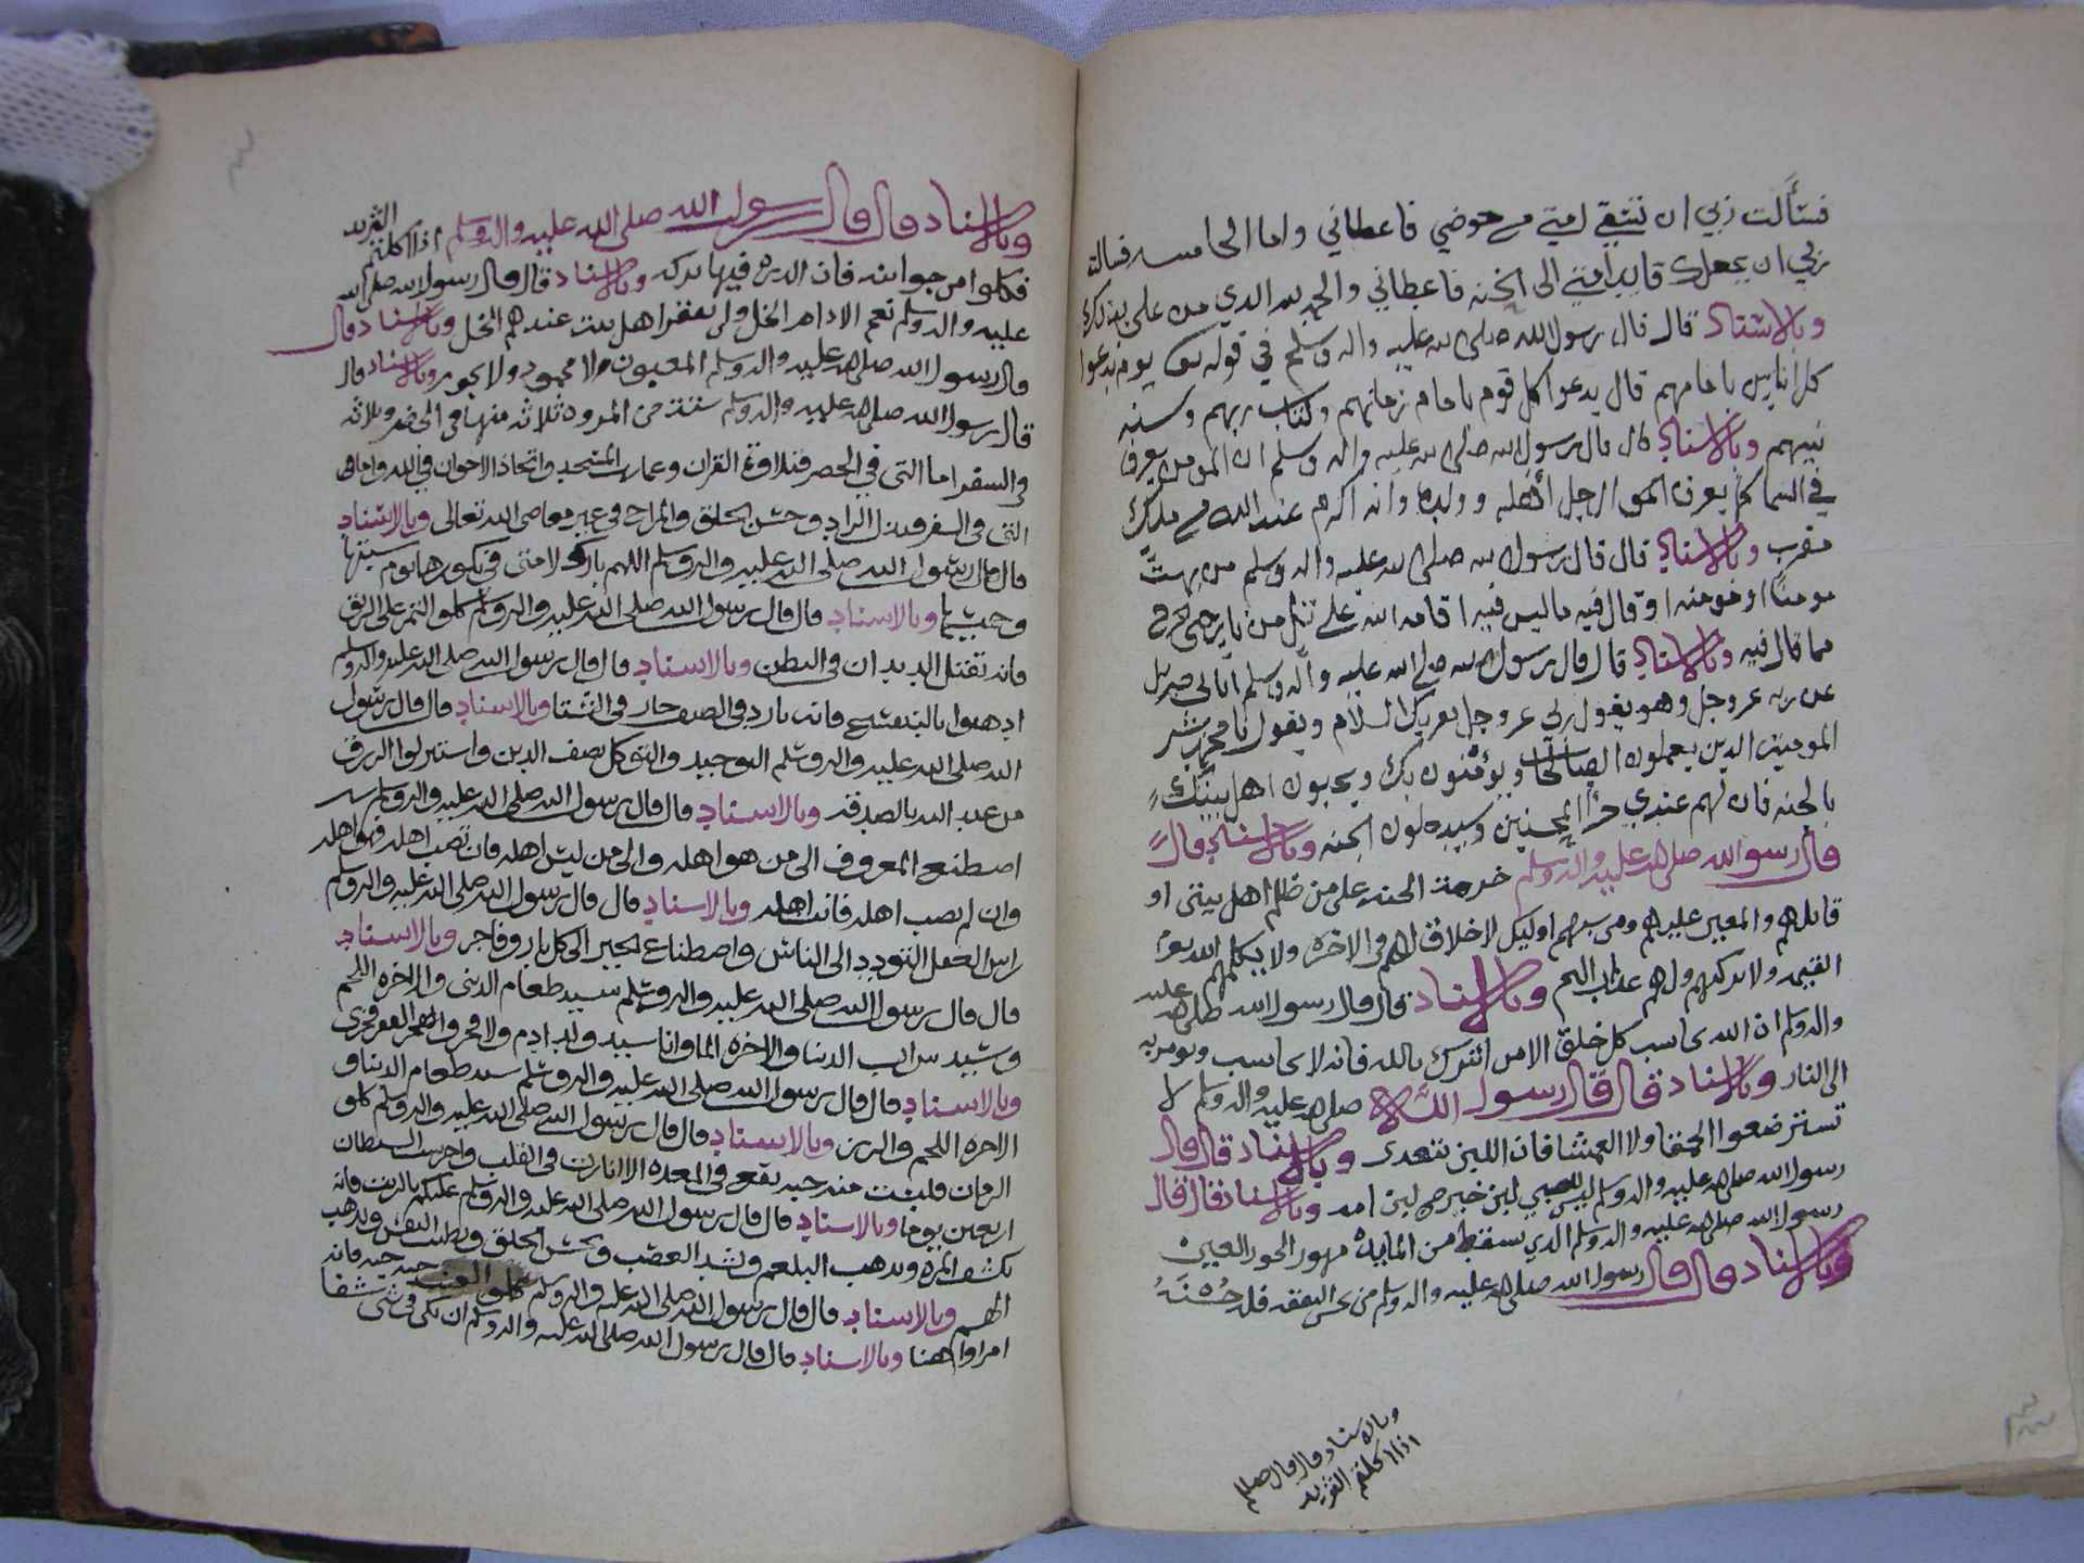 فسألت ربي ان تسقي امتي من حوضي فاعطاني واما الخامسه فسالت
ربي ان يجعلك قايد امتي الى الجنه فاعطاني والحمد لله الذي من علي بذلك
وبالاسناد قال قال رسول الله صلى الله عليه واله وسلم في قوله يوم ندعوا
كل اناس بامامهم قال يدعوا كل قوم بامام زمانهم وكتاب ربهم وسنه
نبيهم وبالاسناد قال قال رسول الله صلى الله عليه واله وسلم ان المومن يعرف
في السما كما يعرف الرجل أهله وولده وانه اكرم عند الله من ملك
مقرب وبالاسناد قال قال رسول الله صلى الله عليه واله وسلم من بهت
مومنا او مومنه او قال فيه ما ليس فيه اقامه الله على تل من نار حتى يخرج
مما قال فيه وبالاسناد قال قال رسول الله صلى الله عليه وآله وسلم اتاني جبريل
عن ربه عز وجل وهو يقول ربي عز وجل يقريك السلام ويقول يا محمد بشر
المومنين الذين يعملون الصالحات ويؤمنون بك ويحبون اهل بيتك
بالجنه فان لهم عندي جزا المحسنين وسيدخلون الجنه وبالاسناد قال
قال رسول الله صلى الله عليه واله وسلم حرمت الجنه على من ظلم اهل بيتي او
قاتلهم والمعين عليهم ومن سبهم اوليك لا خلاق لهم في الاخره ولا يكلمهم الله يوم
القيمه ولا يزكيهم ولهم عذاب اليم وبالاسناد قال قال رسول الله صلى الله عليه
واله وسلم ان الله يحاسب كل خلق الا من اشرك بالله فانه لا يحاسب ويومر به
الى النار وبالاسناد قال قال رسول الله صلى الله عليه واله وسلم لا
تسترضعوا الحمقا ولا العمشا فان اللبن يتعدى وبالاسناد قال قال
رسول الله صلى الله عليه واله وسلم ليس للصبي لبن خير من لبن امه وبالاسناد قال قال
رسول الله صلى الله عليه واله وسلم الذي يسقط من المايده مهور الحور العين
وبالاسناد قال قال رسول الله صلى الله عليه واله وسلم من فله حسنة
وبالاسناد قال قال صللم
اذا اكلتم الثريد
وبالاسناد قال قال رسول الله صلى الله عليه واله وسلم اذا اكلتم الثريد
فكلوا من جوانبه فان الذروه فيها بركه وبالاسناد قال قال رسول الله صلى الله
عليه واله وسلم نعم الادام الخل ولن يفتقر اهل بيت عندهم الخل وبالاسناد قال
قال رسول الله صلى الله عليه واله وسلم المغبون لا محمود ولا ماجور وبالاسناد قال
قال رسول الله صلى الله عليه واله وسلم ستة من المروه ثلاثه منها في الحضر وثلاثه
في السفر اما التي في الحضر فتلاوة القران وعمارت المسجد واتخاذ الاخوان في الله واما
التي في السفر فبذل الزاد وحسن الخلق والمزاح في غير معاصي الله تعالى وبالاسناد
قال قال رسول الله صلى الله عليه واله وسلم اللهم بارك لامتي في بكورها يوم سبتها
وخميسها وبالاسناد قال قال رسول الله صلى الله عليه واله وسلم كلوا التمر على الريق
فانه تقتل الديدان في البطن وبالاسناد قال قال رسول الله صلى الله عليه واله وسلم
ادهنوا بالبنفسج فانه بارد في الصيف حار في الشتا وبالاسناد قال قال رسول
الله صلى الله عليه واله وسلم التوحيد والتوكل نصف الدين واستنزلوا الرزق
من عند الله بالصدقه وبالاسناد قال قال رسول الله صلى الله عليه واله وسلم
اصطنع المعروف الى من هو اهله والى من ليس اهله فان تصب اهله فهو اهله
وان لم تصب اهله فانت اهله وبالاسناد قال قال رسول الله صلى الله عليه واله وسلم
راس العقل التودد الى الناس واصطناع الخير الى كل بار وفاجر وبالاسناد
قال قال رسول الله صلى الله عليه واله وسلم سيد طعام الدنيا والاخره اللحم
وسيد شراب الدنيا والاخره الما وانا سيد ولد ادم ولا فخر والفقر فخري
وبالاسناد قال قال رسول الله صلى الله عليه واله وسلم سيد طعام الدنيا و
الاخره اللحم والرز وبالاسناد قال قال رسول الله صلى الله عليه واله وسلم كلو
الرمان فليست منه حبه تقع في المعده الا انارت في القلب واخرست الشيطان
اربعين يوما وبالاسناد قال قال رسول الله صلى الله عليه واله وسلم عليكم بالزيت فانه
يكشف المره ويذهب البلغم ويشد العصب ويحسن الخلق ويطيب النفس ويذهب
الهم وبالاسناد قال قال رسول الله صلى الله عليه واله وسلم كلوا العنب حبه حبه فانه
امرا واهنا وبالاسناد قال قال رسول الله صلى الله عليه واله وسلم ان يكن في شي شفا